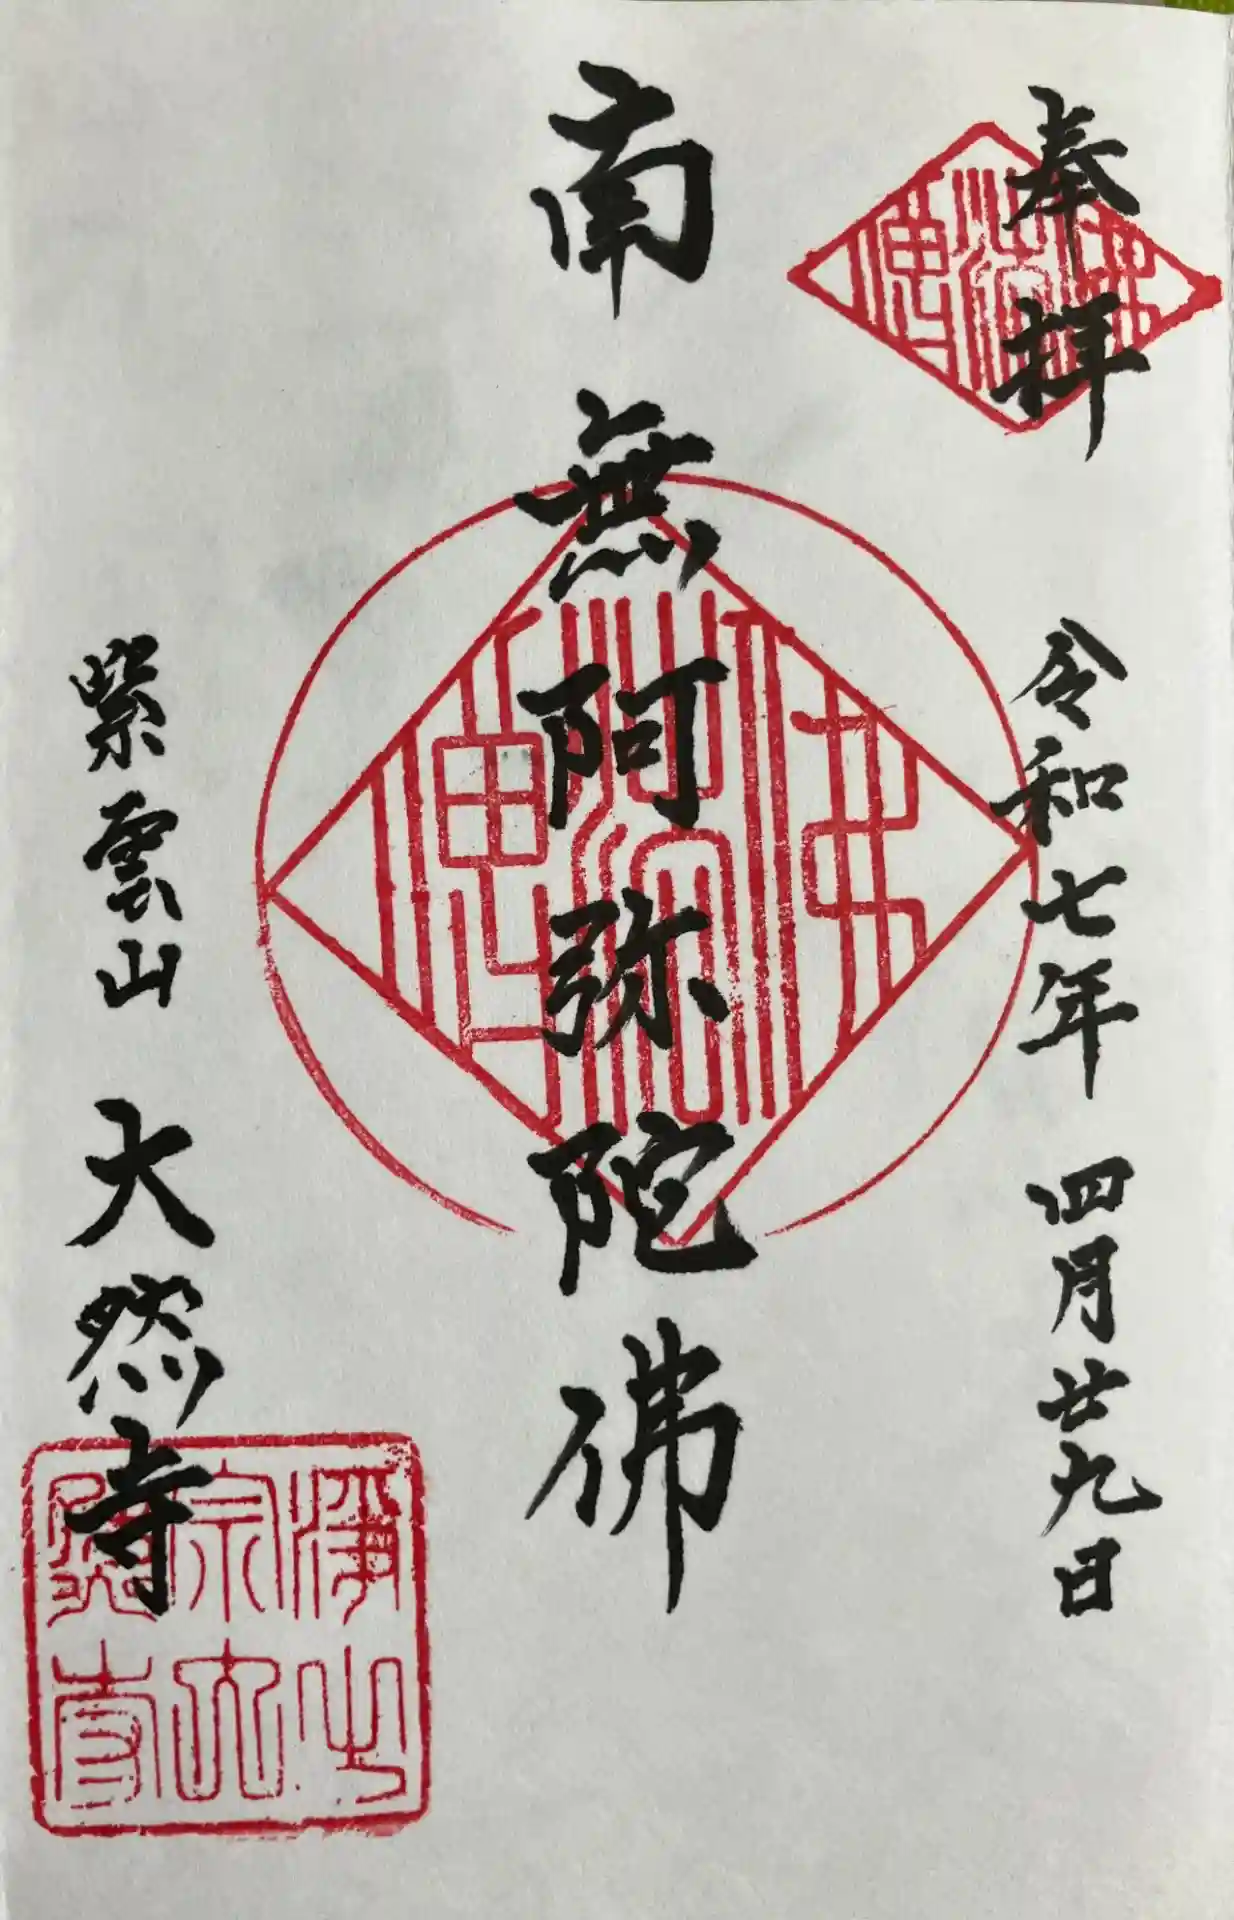 奉拝
令和七年 四月廿九日
南無阿弥陀佛
紫雲山 大然寺
佛法僧寶
浄土宗大然寺